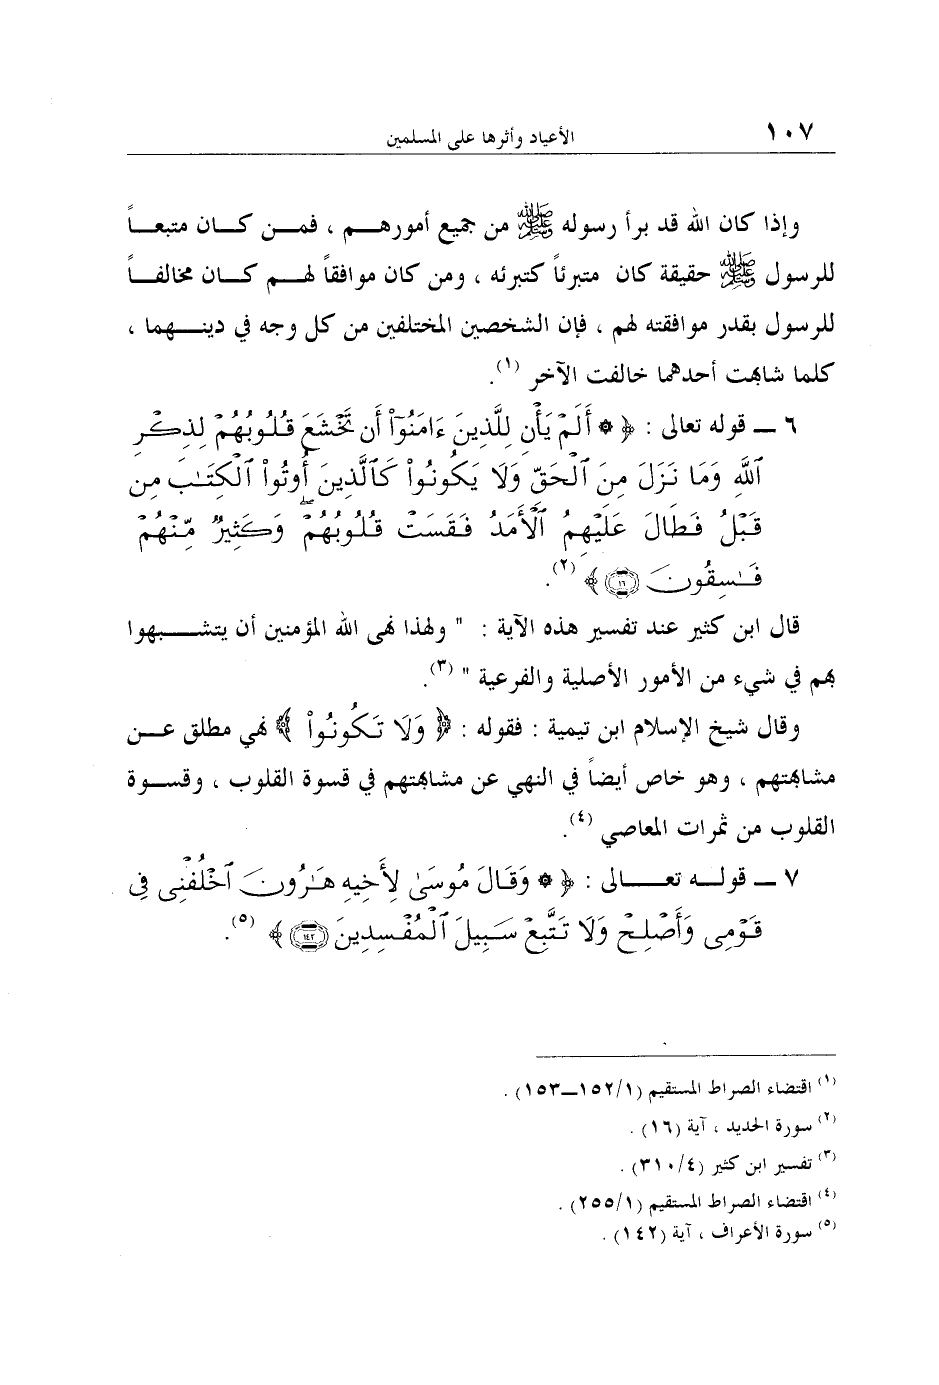 ١٠٧ الأعياد وأثرها على المسلمين
وإذا كان الله قد برأ رسوله ﷺ من جميع أمورهم ، فمن كان متبعاً
للرسول ﷺ حقيقة كان متبرئاً كتبرئه ، ومن كان موافقاً لهم كان مخالفاً
للرسول بقدر موافقته لهم ، فإن الشخصين المختلفين من كل وجه في دينهما ،
كلما شابهت أحدهما خالفت الآخر (١).
٦ ــ قوله تعالى : ﴿ ۞ أَلَمْ يَأْنِ لِلَّذِينَ ءَامَنُوٓا۟ أَن تَخْشَعَ قُلُوبُهُمْ لِذِكْرِ
ٱللَّهِ وَمَا نَزَلَ مِنَ ٱلْحَقِّ وَلَا يَكُونُوا۟ كَٱلَّذِينَ أُوتُوا۟ ٱلْكِتَـٰبَ مِن
قَبْلُ فَطَالَ عَلَيْهِمُ ٱلْأَمَدُ فَقَسَتْ قُلُوبُهُمْ ۖ وَكَثِيرٌ مِّنْهُمْ
فَـٰسِقُونَ ١٦ ﴾ (٢).
قال ابن كثير عند تفسير هذه الآية : " ولهذا نهى الله المؤمنين أن يتشبهوا
بهم في شيء من الأمور الأصلية والفرعية " (٣).
وقال شيخ الإسلام ابن تيمية : فقوله : ﴿ وَلَا تَكُونُوا۟ ﴾ نهي مطلق عن
مشابهتهم ، وهو خاص أيضاً في النهي عن مشابهتهم في قسوة القلوب ، وقسوة
القلوب من ثمرات المعاصي (٤).
٧ ــ قوله تعالى : ﴿ ۞ وَقَالَ مُوسَىٰ لِأَخِيهِ هَـٰرُونَ ٱخْلُفْنِى فِى
قَوْمِى وَأَصْلِحْ وَلَا تَتَّبِعْ سَبِيلَ ٱلْمُفْسِدِينَ ١٤٢ ﴾ (٥).
(١) اقتضاء الصراط المستقيم (١/١٥٢ــ١٥٣) .
(٢) سورة الحديد ، آية (١٦) .
(٣) تفسير ابن كثير (٤/٣١٠) .
(٤) اقتضاء الصراط المستقيم (١/٢٥٥) .
(٥) سورة الأعراف ، آية (١٤٢) .